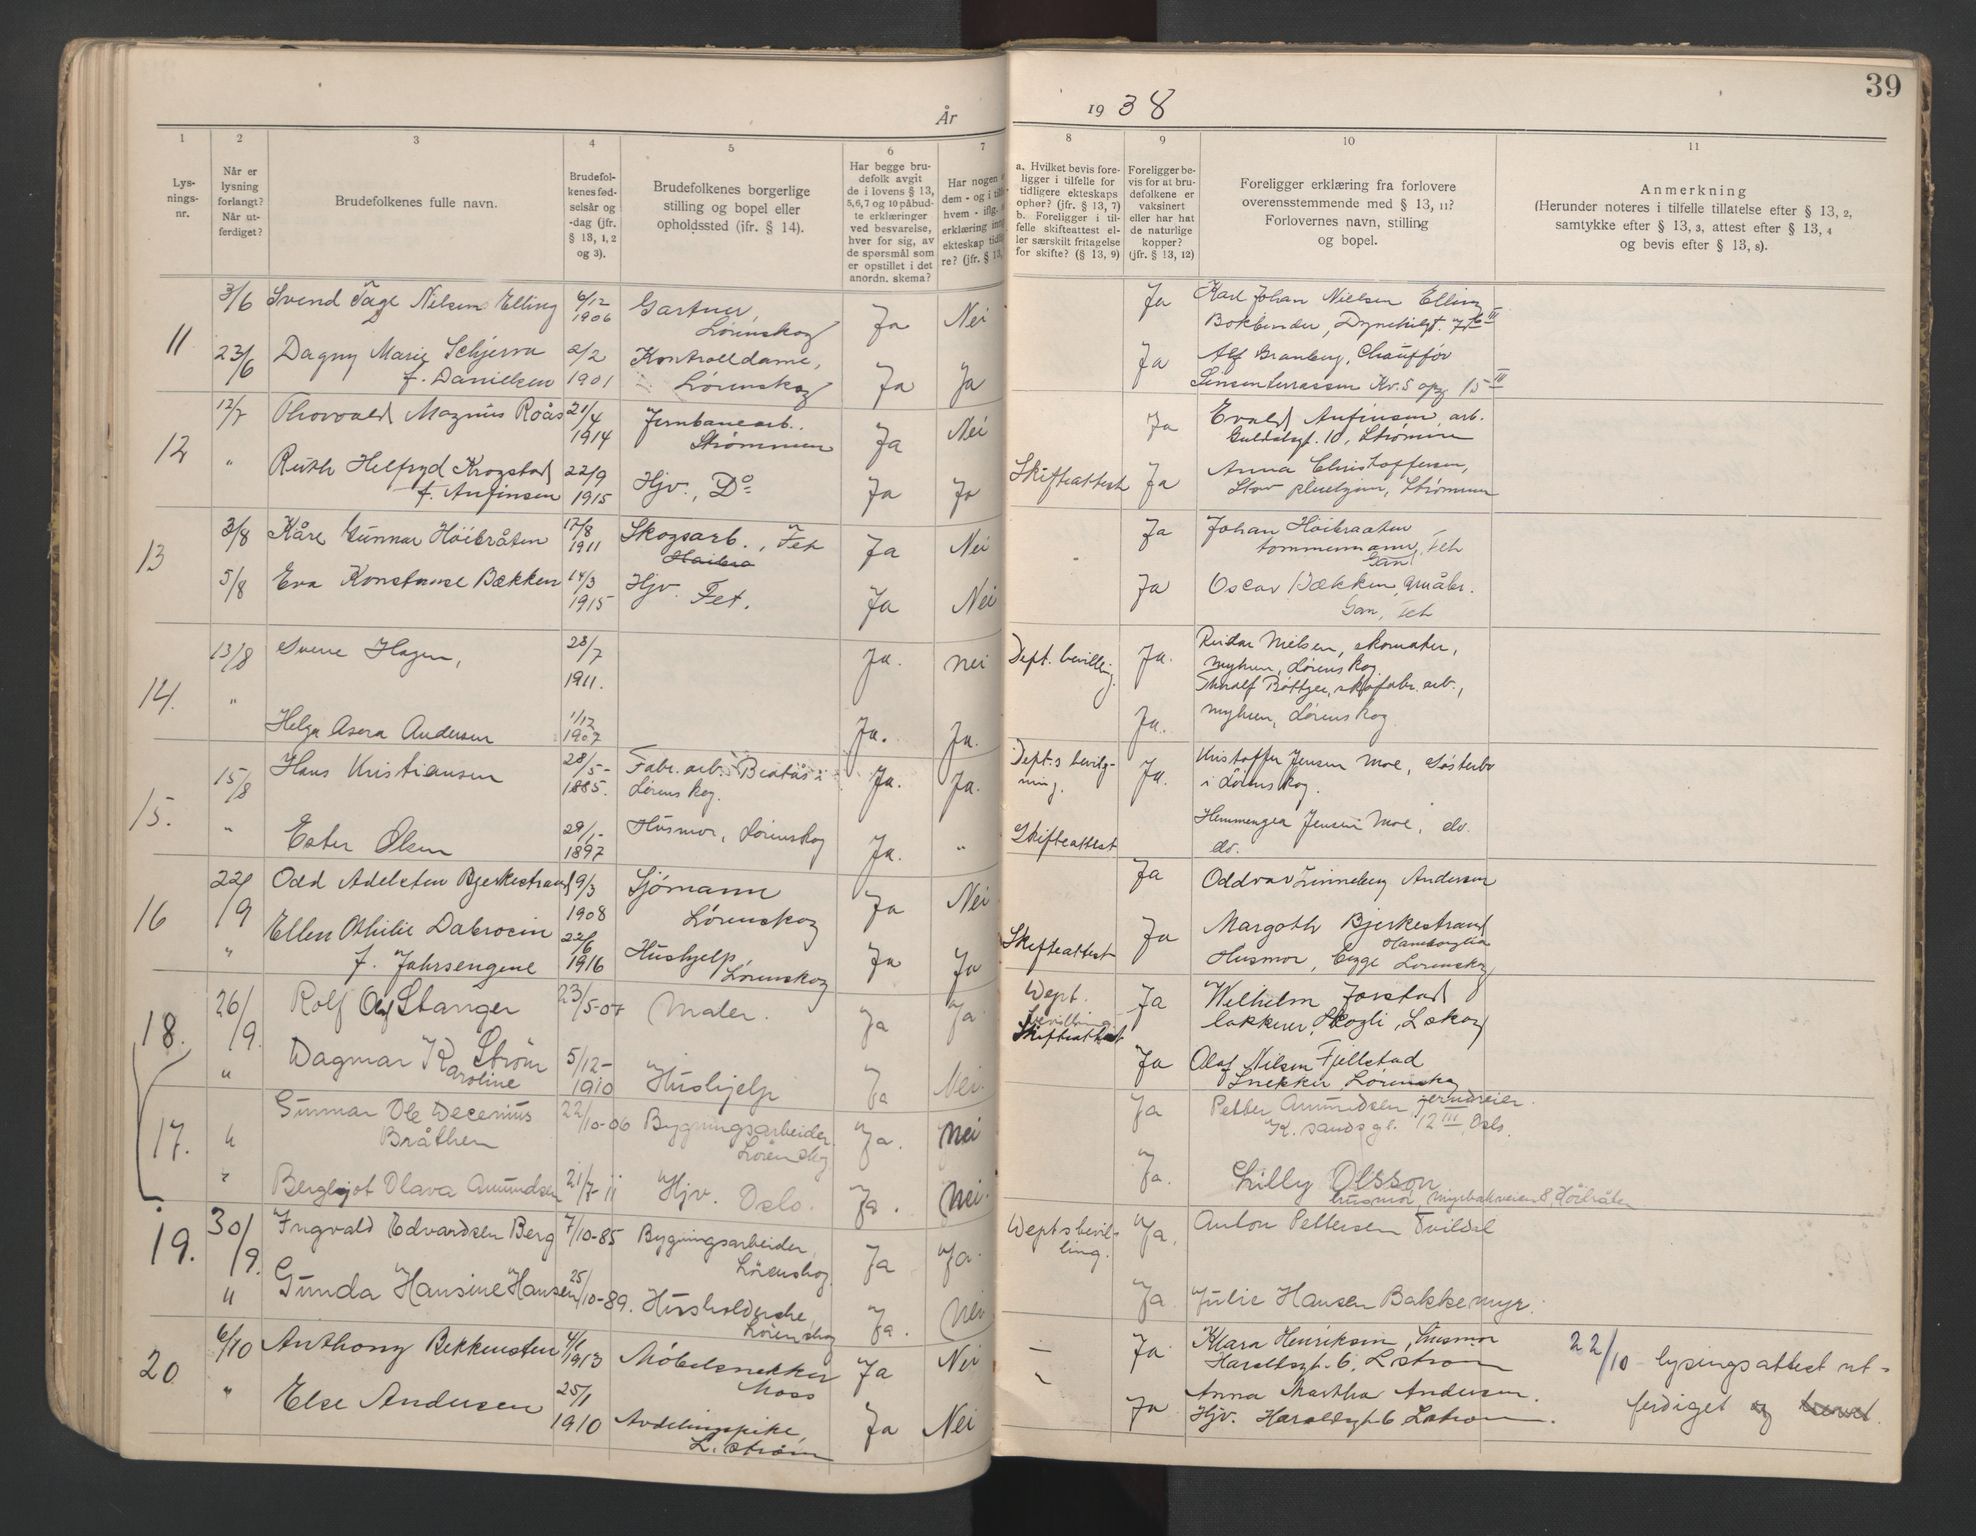 39
År
19 38
1
2
3
4
5
6
7
8
9
10
11
Lys-
nings-
nr.
Når er
lysning
forlangt?
Når ut-
ferdiget?
Brudefolkenes fulle navn.
Brudefol-
kenes fød-
selsår og
-dag (jfr.
§ 13, 1, 2
og 3).
Brudefolkenes borgerlige
stilling og bopel eller
opholdssted (jfr. § 14).
Har begge bru-
defolk avgit
de i lovens § 13,
5,6,7 og 10 påbud-
te erklæringer
ved besvarelse,
hver for sig, av
de spørsmål som
er opstillet i det
anordn. skema?
Har nogen
dem - og i
hvem - iflg.
erklæring inng
ekteskap tidl
re? (jfr. § 13,
a. Hvilket bevis fore-
ligger i tilfelle for
tidligere ekteskaps
ophør? (jfr. § 13, 7)
b. Foreligger i til-
felle skifteattest el-
ler særskilt fritagelse
for skifte? (§ 13, 9)
Foreligger be-
vis for at bru-
defolkene er
vaksinert
eller har hat
de naturlige
kopper?
(jfr. § 13, 12)
Foreligger erklæring fra forlovere
overensstemmende med § 13, 11?
Forlovernes navn, stilling
og bopel.
Anmerkning
(Herunder noteres i tilfelle tillatelse efter § 13, 2,
samtykke efter § 13, 3, attest efter § 13, 4
og bevis efter § 13, 8).
11
3/6 Svend Tage Nielsen Elling 6/12 1906 Gartner, Lørenskog Ja Nei Ja Karl Johan Nielsen Elling
Bokbinder,
23/6 Dagny Marie Schjerva 2/2 1901 Kontrolldame, Lørenskog Ja Ja Ja Alf Branberg, Chauffør
f. Danielsen
Sinsenterrassen Kv. 5 opg 15 III
12
12/7 Thorvald Magnus Roås 21/4 1914 Jernbanearb. Strømmen Ja Nei Ja Evald Anfinsen, arb.
Guldsgt. 10, Strømmen
" Ruth Helfryd Krogstad 22/9 1915 Hjv., Do Ja Ja Skifteattest Ja Anna Christoffersen,
f. Anfinsen
Strømmen
13
3/8 Kåre Gunnar Höibråten 17/8 1911 Skogsarb., Fet Ja Nei Ja Johan Höibraaten
tømmermann, Fet
Gan
5/8 Eva Konstanse Bækken 14/3 1915 Hjv. Fet. Ja Nei Ja Oscar Bækken, småbr.
Gan, Fet
14.
13/8 Sverre Hagen, 28/7 1911. Ja. nei Dept. bevillig. Ja. Reidar Nielsen, skomaker,
Myhren, Lørenskog.
Thoralf Böttger, skofabr. arb.,
" Helga Asora Andersen 1/12 1907 Ja. Ja. Ja. Myhren, Lørenskog.
15.
15/8 Hans Kristiansen 28/5- 1885. Fabr. arb. i Lørenskog. Ja. Ja. Dept.s bevilg-
ning. Ja. Kristoffer Jensen Moe,
i Lørenskog.
" Ester Olsen 29/1- 1897 Husmor, Lørenskog Ja. " Skifteattest Jensen Moe, do.
do.
16
22/9 Odd Adelsten Bjerkestrand 9/3 1908 Sjømann Lørenskog Ja Nei Ja Oddvar Linneberg Andersen
" Ellen Othilie Dabrocin 22/6 1916 Hushjelp, Lørenskog Ja Ja Skifteattest Ja Margoth Bjerkestrand
f. Jahrsengene
Husmor, Lørenskog
18.
26/9. Rolf Olaf Stanger 23/5-07 Maler. Ja Ja. Dept.
bevilling
Skifteattest Ja Wilhelm Jorstad
lakkerer, Skogli, L.skog
" Dagmar K Strøm 5/12- 1910 Hushjelp Ja Nei. Ja Olaf Nilsen Fjellstad
Karoline
Snekker, Lørenskog
17.
" Gunnar Ole Decenius 22/10-06 Bygningsarbeider. Lörenskog Ja. Nei Ja Petter Amundsen
Bråthen
K. sands gt. 12 III, Oslo.
" Bergljot Olava Amundsen 21/7-11 Hjv. Oslo. Ja. Nei. Ja. Lilly Olsson
husmor, Myrbakveien 8, Höibråten
19.
30/9. Ingvald Edvardsen Berg 7/10-85 Bygningsarbeider, Lörenskog Ja Ja. Deptsbevil-
ling. Ja. Anton Pettersen Tvildal
" Gunda Hansine Hansen 25/10-89. Husholderske, Lörenskog Ja. Nei Ja. Julie Hansen Bakkemyr.
20
6/10 Anthony Bekkensten 4/1 1913 Möbelsnekker Moss Ja Nei - Ja Klara Henriksen, husmor
Haraldsgt. 6, L.strøm
22/10 lysingsattest ut-
" Else Andersen 25/1 1910 Avdelingspike, L. strøm Ja Nei Ja Anna Martha Andersen.
Hjv. Haraldsgt 6 L.strøm.
ferdiget og